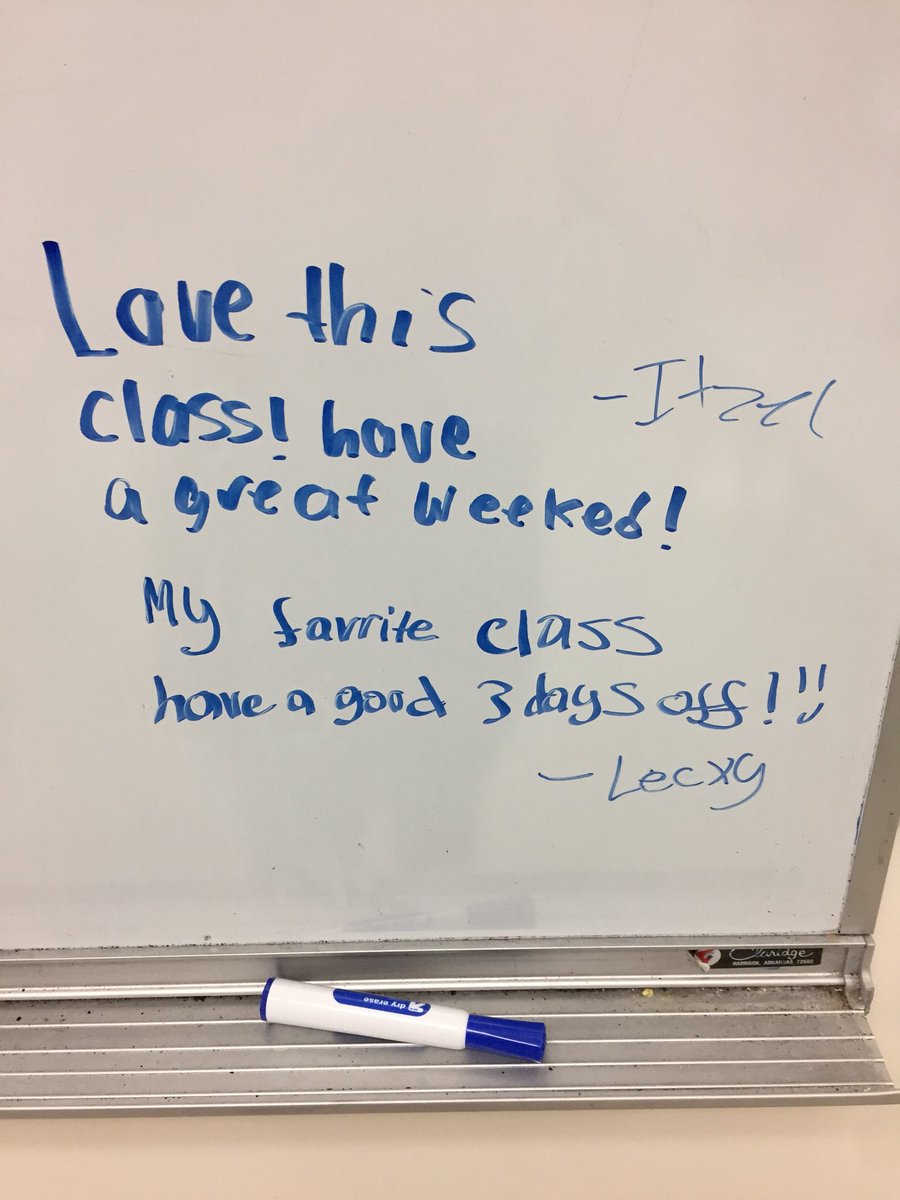 Love this
class! have
- Itzel
a great weeked!
My favrite class
have a good 3 days off!!!
- Lecxy
Claridge
HARRISON, ARKANSAS 72602
dry erase